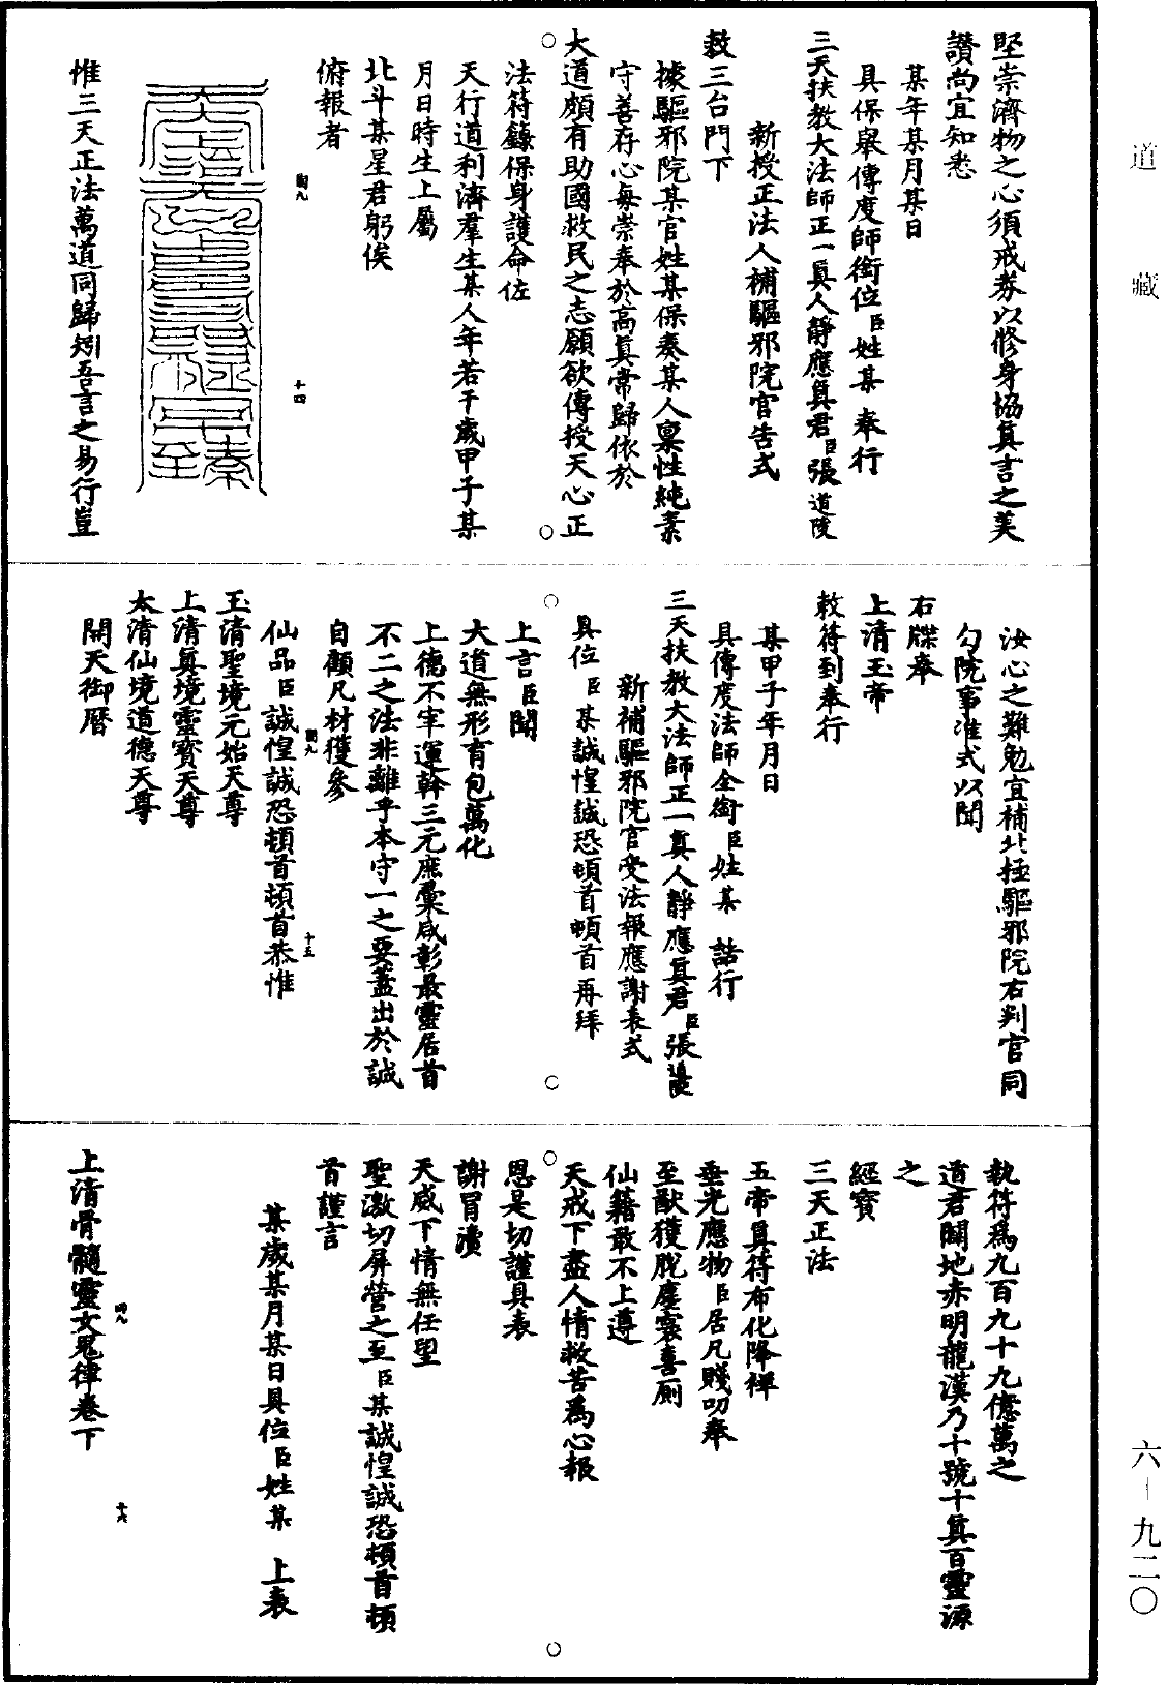 道藏
堅崇濟物之心須戒券以修身協真言之美
讚尚宜知悉
某年某月某日
具保舉傳度師銜位臣姓某 奉行
三天扶教大法師正一真人靜應真君臣張道陵
新授正法人補驅邪院官告式
敕三台門下
據驅邪院某官姓某保奏某人稟性純素
守善存心每崇奉於高真常歸依於
大道頗有助國救民之志願欲傳授天心正
法符籙保身護命佐
天行道利濟羣生某人年若干歲甲子某
月日時生上屬
北斗某星君躬俟
俯報者
十四
惟三天正法萬道同歸矧吾言之易行豈
汝心之難勉宜補北極驅邪院右判官同
勾院事准式以聞
右牒奉
上清玉帝
敕符到奉行
某甲子年月日
具傳度法師全銜臣姓某 誥行
三天扶教大法師正一真人靜應真君臣張道陵
新補驅邪院官受法報應謝表式
具位臣某誠惶誠恐頓首頓首再拜
上言臣聞
大道無形育包萬化
上德不宰運幹三元庶彙咸彰最靈居首
不二之法非離乎本守一之要蓋出於誠
自顧凡材獲參
仙品臣誠惶誠恐頓首頓首恭惟
十五
玉清聖境元始天尊
上清真境靈寶天尊
太清仙境道德天尊
開天御曆
執符為九百九十九億萬之
道君闢地赤明龍漢乃十號十真百靈源
之
經寶
三天正法
五帝真符布化降禪
垂光應物臣居凡賤叨奉
至猷獲脫塵寰喜廁
仙籍敢不上遵
天戒下盡人情救苦為心報
恩是切謹具表
謝冒瀆
天威下情無任望
聖激切屏營之至臣某誠惶誠恐頓首頓
首謹言
某歲某月某日具位臣姓某 上表
十六
上清骨髓靈文鬼律卷下
六－九二〇